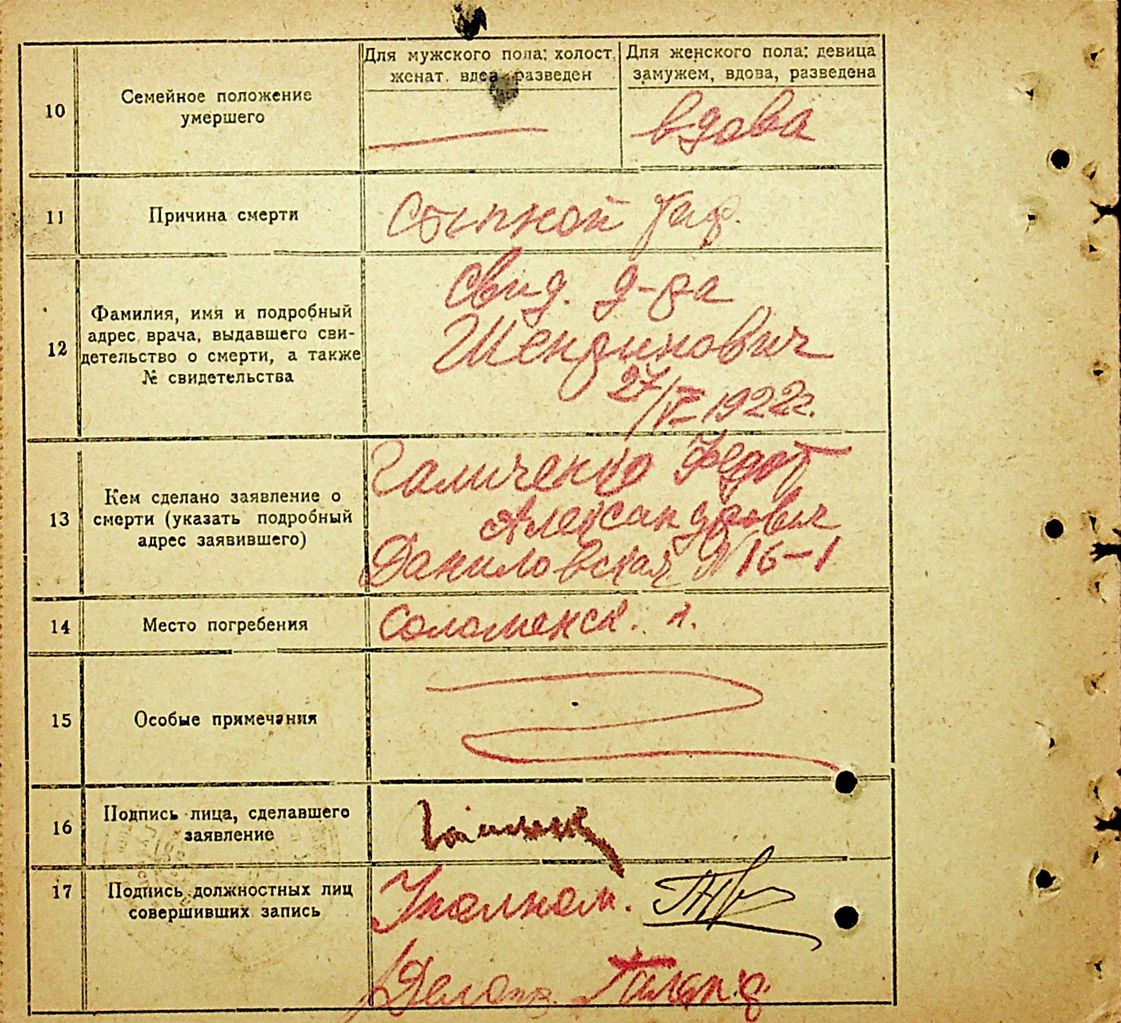 10
Семейное положение
умершего
Для мужского пола: холост,
женат, вдов, разведен
Для женского пола: девица
замужем, вдова, разведена
вдова
11
Причина смерти
Сыпной тиф.
12
Фамилия, имя и подробный
адрес врача, выдавшего сви-
детельство о смерти, а также
№ свидетельства
Свид. д-ра
27/IV 1922 г.
13
Кем сделано заявление о
смерти (указать подробный
адрес заявившего)
Галиченко Федот
Александрович
Даниловская N 16-1
14
Место погребения
Соломенск.
15
Особые примечания
16
Подпись лица, сделавшего
заявление
17
Подпись должностных лиц
совершивших запись
Уполном.
Делопр.